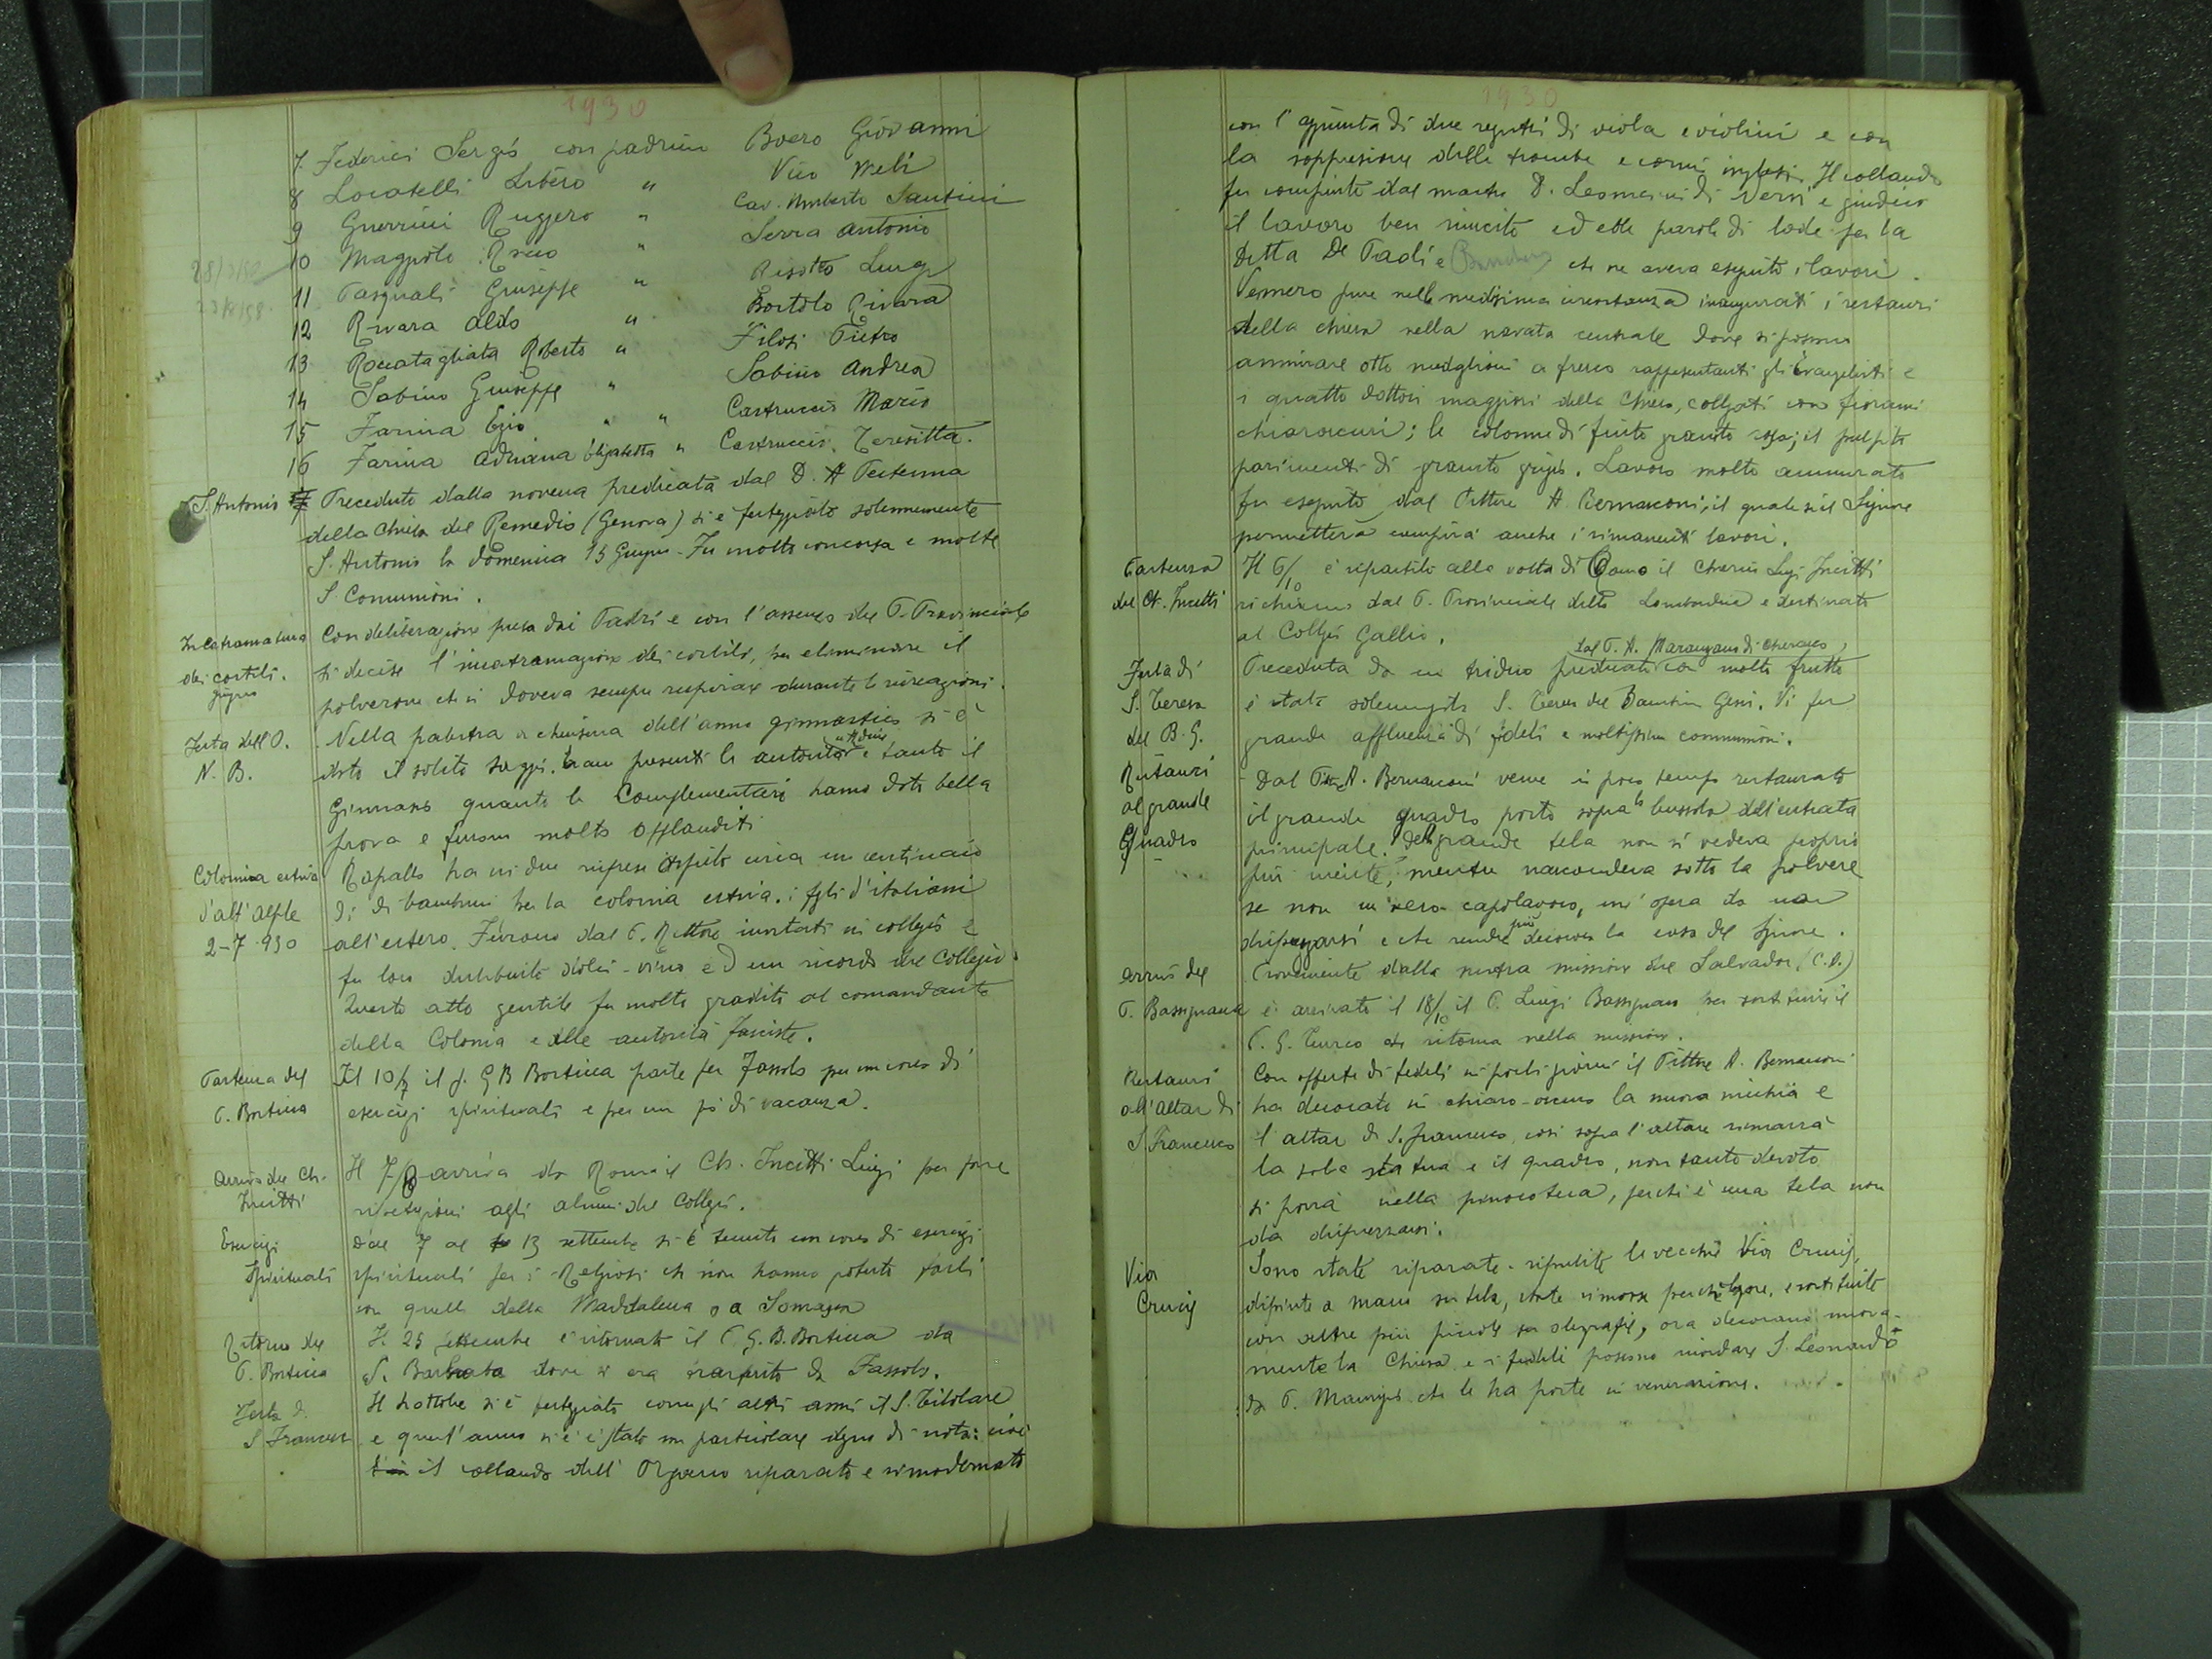 1930
7. Federici Sergio con padrino Boero Giovanni
8 Locatelli Libero " Vico Meli
9 Guerrini Ruggero " Cav. Umberto Santini
10 Magnole " Serra Antonio
11 Pasquali Giuseppe " Risotto Luigi
12 Rivara Aldo " Bortolo Rivara
13 Roccatagliata Roberto " Filosi Pietro
14 Sabino Giuseppe " Sabino Andrea
15 Farina Egio " " Castruccio Mario
16 Farina Adriana " Castruccio Teresitta.
S. Antonio Preceduto dalla novena predicata dal D. A
della Chiesa del Remedio (Genova) si è festeggiato solennemente
S. Antonio la domenica 15 Giugno. Fu molto concorsa e molte
S. Comunioni.
Incatramatura Con deliberazione presa dai Padri e con l'assenso del P. Provinciale
dei cortili. si decise l'incatramazione dei cortili, per eliminare il
giugno polverone che si doveva sempre respirare durante le ricreazioni.
Festa dell'O. Nella palestra a chiusura dell'anno ginnastico si è
N. B. dato il solito saggio. Erano presenti le autorità e tanto il
Ginnasio quanto le Complementari hanno dato bella
prova e furono molto applauditi
Colonia estiva Rapallo ha in due riprese ospitato circa un centinaio
2-7-930 di bambini per la colonia estiva. i figli d'italiani
all'estero. Furono dal P. Rettore invitati in collegio e
fu loro distribuito dolci - vino ed un ricordo del Collegio.
Questo atto gentile fu molto gradito al comandante
della Colonia e alle autorità fasciste.
Partenza del Il 10/7 il p. G B Bortina parte per Fassolo per un corso di
P. Bortina esercizi spirituali e per un po di vacanza.
Arrivo del Ch. Il arriva da Roma il Ch. Incitti Luigi per fare
Incitti ripetizioni agli alunni del Collegio.
Esercizi Dal 7 al 13 settembre si è tenuto un corso di esercizi
Spirituali spirituali per i Religiosi che non hanno potuto farli
con quelli della Maddalena o a Somasca
Ritorno del Il 25 settembre è ritornato il P. G. B. Bortina da
P. Bortina S. Barbara dove si era trasferito da Fassolo.
Festa di Il 4 ottobre si è festeggiato come gli altri anni il S. Titolare
S. Francesco e quest'anno si è stato un particolare degno di nota: cioè
il collaudo dell'Organo riparato e rimodernato
1930
con l'aggiunta di due registri di viola e violini e con
la soppressione delle trombe e corni inglesi. Il collaudo
fu compiuto dal maestro D. di Nervi e giudicò
il lavoro ben riuscito ed ebbe parole di lode per la
Ditta De Paoli e che ne aveva eseguito i lavori.
Vennero pure nella medesima circostanza inaugurati i restauri
della chiesa nella navata centrale dove si possono
ammirare otto medaglioni a fresco rappresentanti gli Evangelisti e
i quattro dottori maggiori della Chiesa, collegati con fiorami
chiaroscuri; le colonne di finto granito rosa; il pulpito
parimenti di granito grigio. Lavoro molto ammirato
fu eseguito dal Pittore A. Bernasconi, il quale se il Signore
permetterà compirà anche i rimanenti lavori.
Partenza Il 6/10 è ripartito alla volta di Como il Chierico Luigi Incitti
del Ch. Incitti richiamato dal P. Provinciale della Lombardia e destinato
al Collegio Gallio.
dal P. A. di Cherasco,
Festa di Preceduta da un triduo predicato con molto frutto
S. Teresa è stata S. Teresa del Bambin Gesù. Vi fu
del B. G. grande affluenza di fedeli e moltissime communioni.
Restauri Dal Pitt. A. Bernasconi venne in poco tempo restaurato
al grande il grande quadro posto sopra la bussola dell'entrata
Quadro principale. Della grande tela non si vedeva proprio
più niente, mentre nascondeva sotto la polvere
se non un vero capolavoro, un'opera da non
disprezzarsi e che rende più decorosa la casa del Signore.
Arrivo del Proveniente dalla nostra missione del Salvador (C.A.)
P. Bassignana è arrivato il 18/10 il P. Luigi Bassignana per sostituire il
P. G. Turco che ritorna nella missione.
Restauri Con offerte di fedeli in pochi giorni il Pittore A. Bernasconi
all'altar di ha decorato in chiaro-oscuro la nuova nicchia e
S. Francesco l'altar di S. Francesco, così sopra l'altare rimarrà
la sola statua e il quadro, non tanto devoto
si porrà nella pinacoteca, perché è una tela non
da disprezzarsi.
Via Sono state riparate - ripulite le vecchie Via Crucis,
Crucis dipinte a mano su tela, state rimosse perché logore, e sostituite
con altre più piccole in oleografie, ora decorano nuova-
mente la Chiesa e i fedeli possono ricordare S. Leonardo
da P. Maurizio che le ha poste in venerazione.